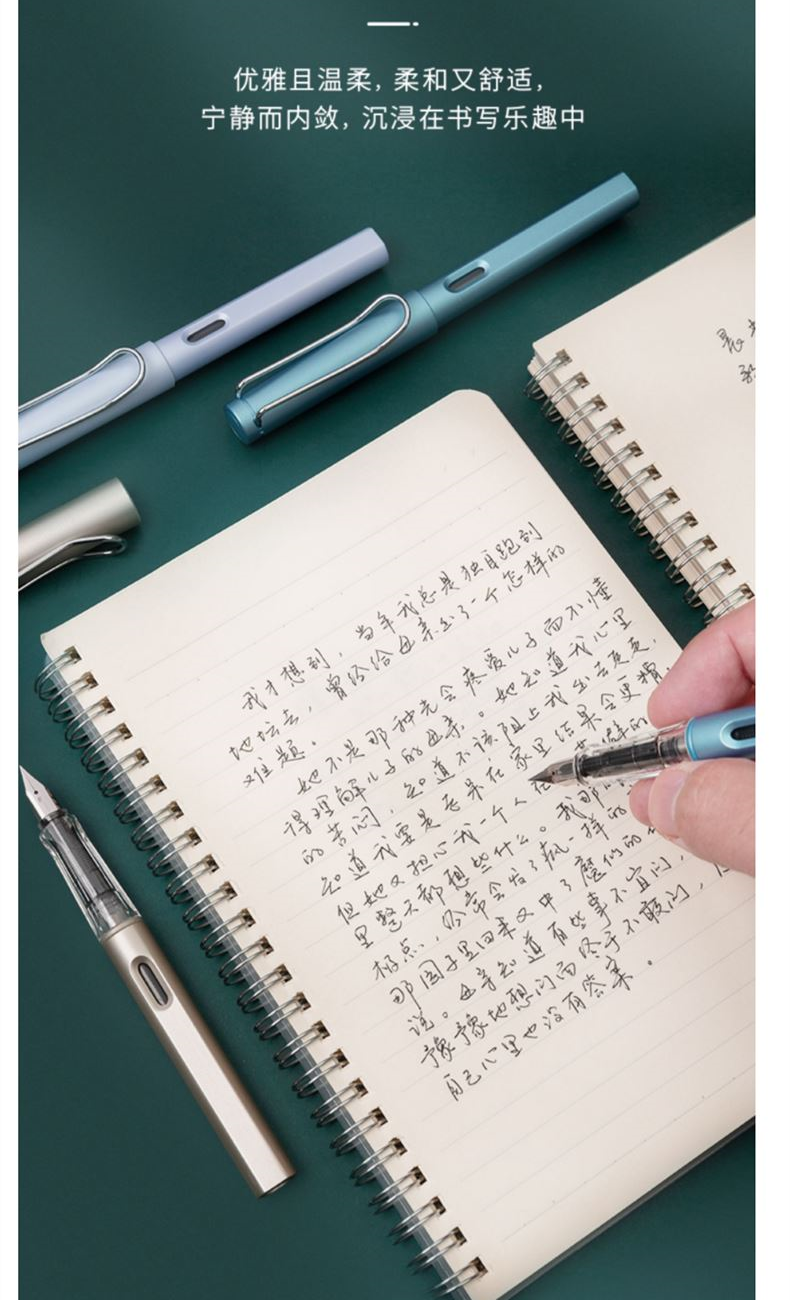 优雅且温柔，柔和又舒适，
宁静而内敛，沉浸在书写乐趣中
我才想到，当年我总是独自跑到
地坛去，曾经给母亲出了一个怎样的
难题。
她不是那种光会疼爱儿子而不懂
得理解儿子的母亲。她知道我心里
的苦闷，知道不该阻止我出去走走，
知道我要是老呆在家里结果会更糟，
但她又担心我一个人在 僻的
里整天都想些什么。我那
极点，经常会发了疯一样的
那园子里回来又中了魔似的
说。母亲知道有些事不宜问，
豫豫地想问而终于不敢问，
自己心里也没有答案。
晨